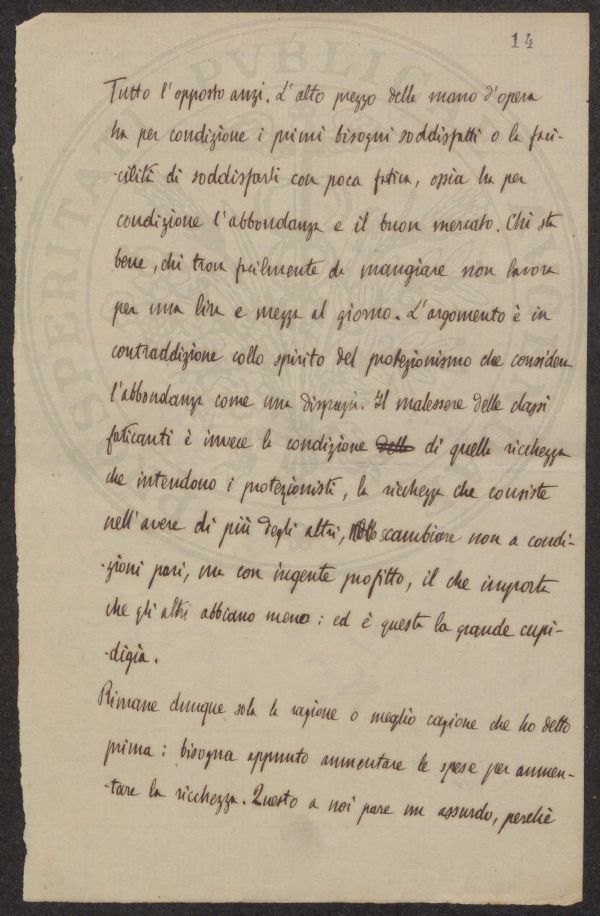 14
Tutto l'opposto anzi. L'alto prezzo della mano d'opera
ha per condizione i primi bisogni soddisfatti o la faci-
-cilità di soddisfarli con poca fatica, ossia ha per
condizione l'abbondanza e il buon mercato. Chi sta
bene, chi trova facilmente da mangiare non lavora
per una lira e mezza al giorno. L'argomento è in
contraddizione collo spirito del protezionismo che considera
l'abbondanza come una disgrazia. Il malessere delle classi
faticanti è invece la condizione della di quella ricchezza
che intendono i protezionisti, la ricchezza che consiste
nell'avere di più degli altri, scambiare non a condi-
-zioni pari, ma con ingente profitto, il che importa
che gli altri abbiano meno: ed è questa la grande cupi-
-digia.
Rimane dunque sola la ragione o meglio cagione che ho detto
prima: bisogna appunto aumentare le spese per aumen-
-tare la ricchezza. Questo a noi pare un assurdo, perchè